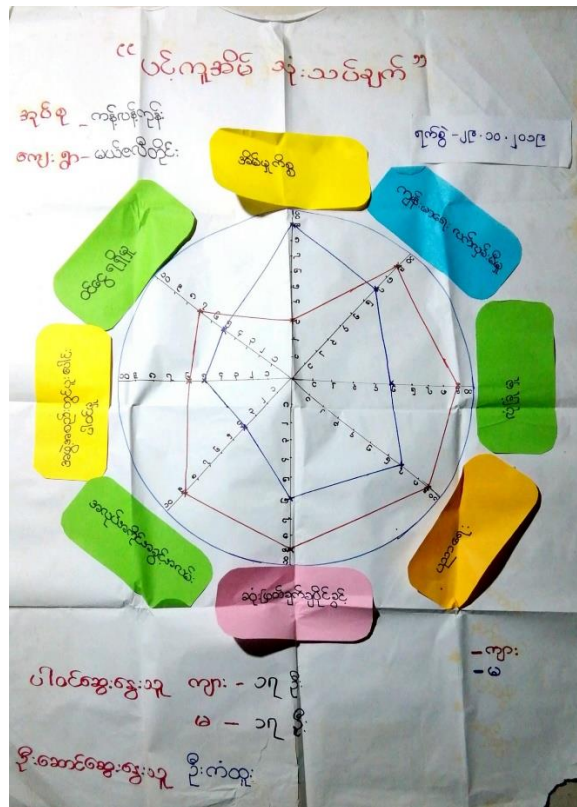 “ပင့်ကူအိမ် သုံးသပ်ချက်”
အုပ်စု - ကန့်လန့်ကုန်း
ကျေးရွာ - မယ်ဇလီတိုင်း
ရက်စွဲ - ၂၉.၁၀.၂၀၁၉
အိမ်မှုကိစ္စ
ကျန်းမာရေး လက်လှမ်းမီမှု
လုံခြုံမှု
ပညာရေး
ဆုံးဖြတ်ချက်ချပိုင်ခွင့်
အလုပ်အကိုင်အခွင့်အလမ်း
အဖွဲ့အစည်းတွင်ပူးပေါင်း
ပါဝင်မှု
ဝင်ငွေ ရရှိမှု
၁ ၂ ၃ ၄ ၅ ၆ ၇ ၈ ၉ ၁၀
- ကျား
- မ
ပါဝင်ဆွေးနွေးသူ ကျား - ၁၇ ဦး
မ - ၁၇ ဦး
ဦးဆောင်ဆွေးနွေးသူ ဦးကံထူး